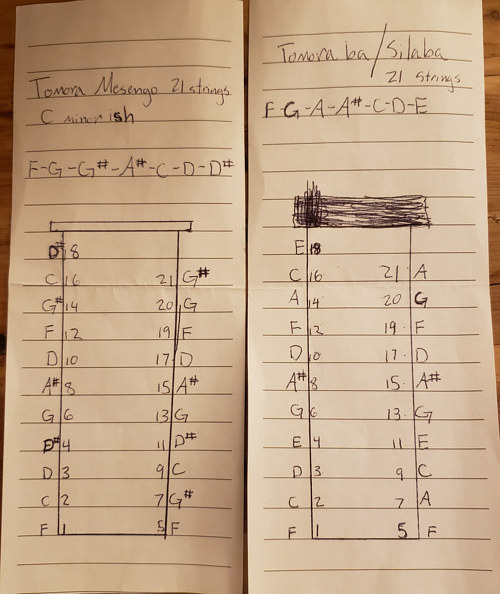 Tomora Mesengo 21 strings
C minor ish
F-G-G#-A#-C-D-D#
D# 18
C 16 21 G#
G# 14 20 G
F 12 19 F
D 10 17 D
A# 8 15 A#
G 6 13 G
D# 4 11 D#
D 3 9 C
C 2 7 G#
F 1 5 F
Tomora ba/Silaba
21 strings
F-G-A-A#-C-D-E
E 18
C 16 21 A
A 14 20 G
F 12 19 F
D 10 17 D
A# 8 15 A#
G 6 13 G
E 4 11 E
D 3 9 C
C 2 7 A
F 1 5 F